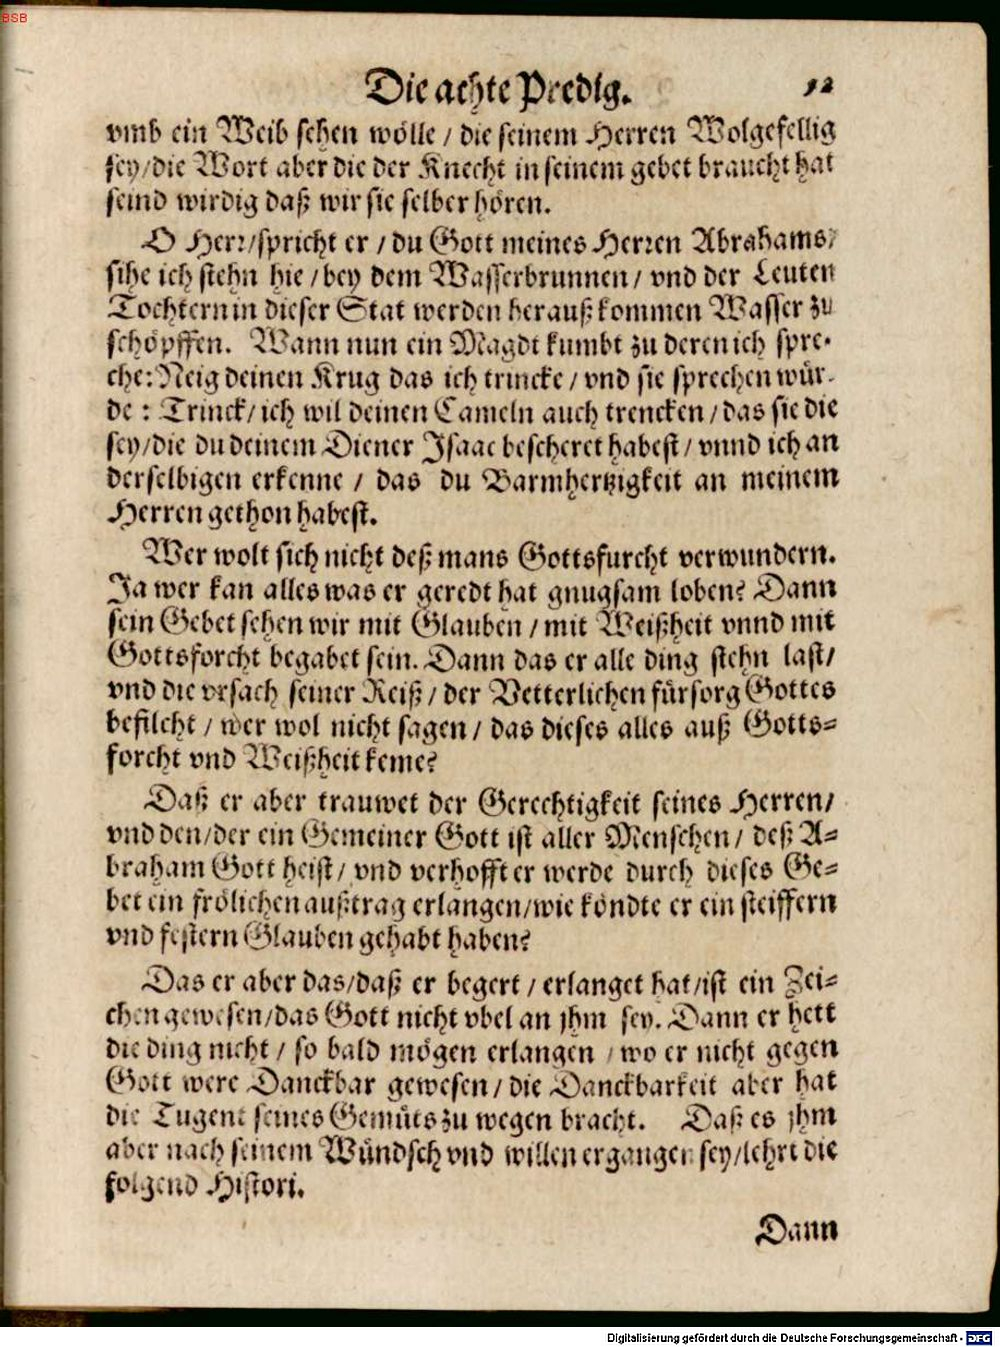 BSB
Die achte Predig. 12
vmb ein Weib sehen wölle / die seinem Herren Wolgefellig
sey/die Wort aber die der Knecht in seinem gebet braucht hat
seind wirdig daß wir sie selber hören.
O Herr/spricht er / du Gott meines Herren Abrahams/
sihe ich stehn hie / bey dem Wasserbrunnen / vnd der Leuten
Tochtern in dieser Stat werden herauß kommen Wasser zu
schöpffen. Wann nun ein Magdt kumbt zu deren ich spre-
che: Neig deinen Krug das ich trincke / vnd sie sprechen wür-
de : Trinck/ ich wil deinen Cameln auch trencken / das sie die
sey/die du deinem Diener Isaac bescheret habest / vnnd ich an
derselbigen erkenne / das du Barmhertzigkeit an meinem
Herren gethon habest.
Wer wolt sich nicht deß mans Gottsfurcht verwundern.
Ja wer kan alles was er geredt hat gnugsam loben? Dann
sein Gebet sehen wir mit Glauben / mit Weißheit vnnd mit
Gottsforcht begabet sein. Dann das er alle ding stehn last/
vnd die vrsach seiner Reiß / der Vetterlichen fürsorg Gottes
befilcht / wer wol nicht sagen / das dieses alles auß Gotts-
forcht vnd Weißheit keme?
Daß er aber trauwet der Gerechtigkeit seines Herren/
vnd den/der ein Gemeiner Gott ist aller Menschen / deß A-
braham Gott heist / vnd verhofft er werde durch dieses Ge-
bet ein frölichen außtrag erlangen/wie köndte er ein steiffern
vnd festern Glauben gehabt haben?
Das er aber das/daß er begert / erlanget hat/ist ein Zei-
chen gewesen/das Gott nicht vbel an jhm sey. Dann er hett
die ding nicht / so bald mögen erlangen / wo er nicht gegen
Gott were Danckbar gewesen / die Danckbarkeit aber hat
die Tugent seines Gemüts zu wegen bracht. Daß es jhm
aber nach seinem Wündsch vnd willen ergangen sey/lehrt die
folgend Histori.
Dann
Digitalisierung gefördert durch die Deutsche Forschungsgemeinschaft - DFG